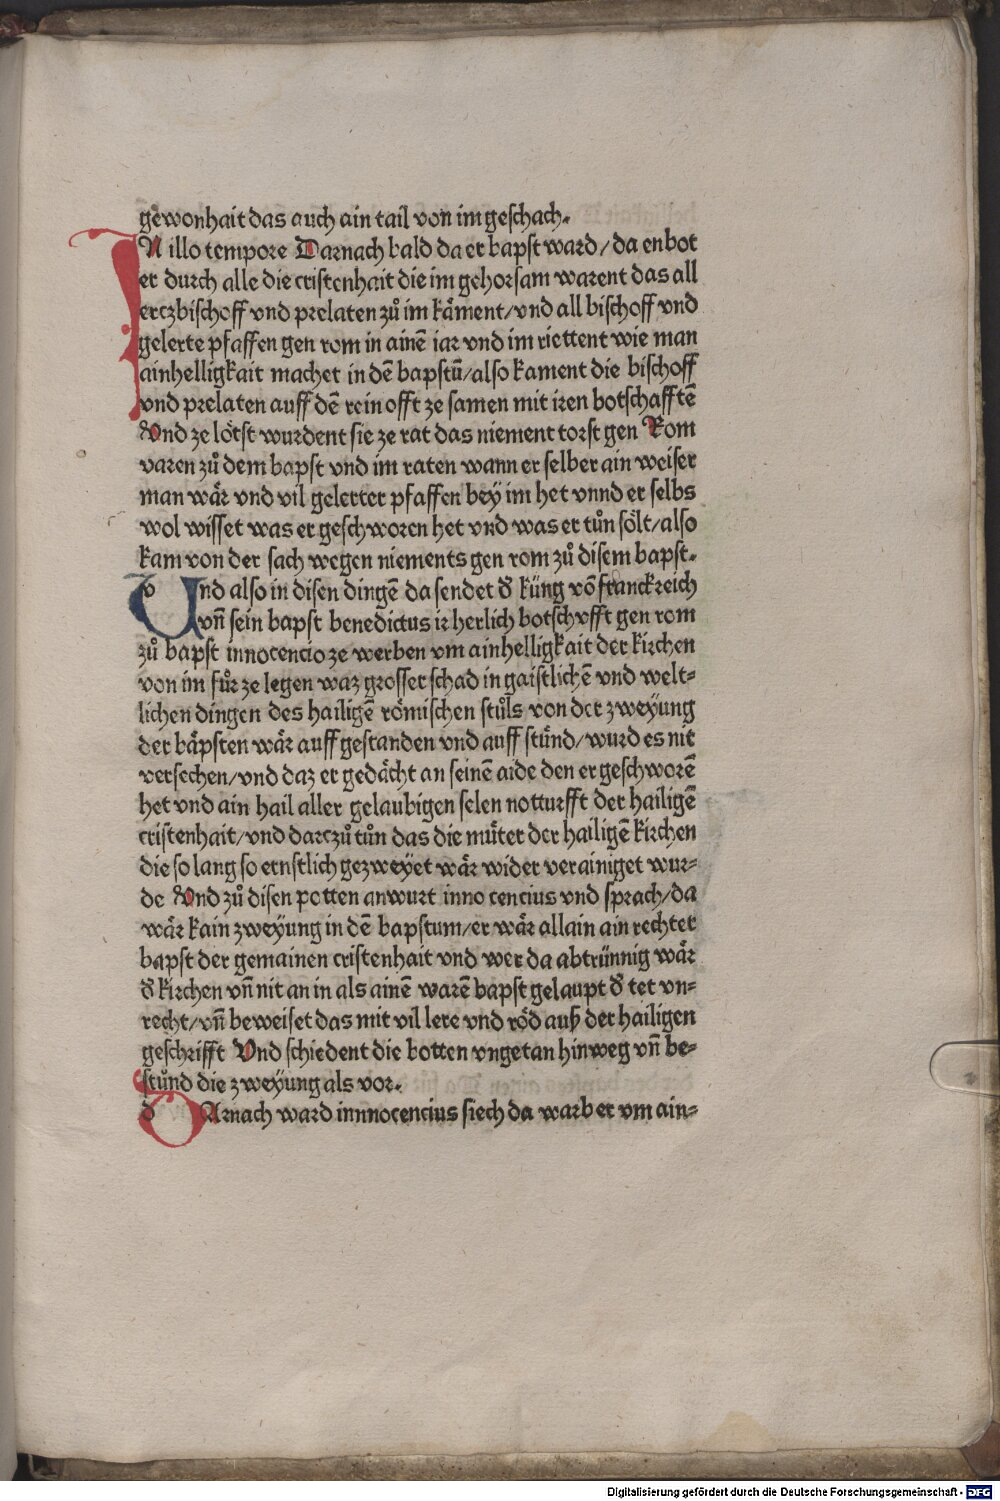 gewonhait das auch ain tail von im geschach.
IN illo tempore Darnach bald da er bapst ward/da enbot
er durch alle die cristenhait die im gehorsam warent das all
erczbischoff vnd prelaten zů im kåment/vnd all bischoff vnd
gelerte pfaffen gen rom in ainē iar vnd im riettent wie man
ainhelligkait machet in dē bapstū/also kament die bischoff
vnd prelaten auff dē rein offt ze samen mit iren botschafftē
Vnd ze lötst wurdent sie ze rat das niement torst gen Rom
varen zů dem bapst vnd im raten wann er selber ain weiser
man wår vnd vil gelerter pfaffen bey im het vnnd er selbs
wol wisset was er geschworen het vnd was er tůn sölt/also
kam von der sach wegen niements gen rom zů disem bapst.
Vnd also in disen dingē da sendet d̕ küng vō franckreich
vnn̄ sein bapst benedictus ir herlich botschofft gen rom
zů bapst innocencio ze werben vm ainhelligkait der kirchen
von im fůr ze legen waz grosser schad in gaistlichē vnd welt=
lichen dingen des hailigē römischen stůls von der zweyung
der båpsten wår auff gestanden vnd auff stůnd/wurd es nit
versechen/vnd daz er gedåcht an seinē aide den er geschworē
het vnd ain hail aller gelaubigen selen notturfft der hailigē
cristenhait/vnd darczů tůn das die můter der hailigē kirchen
die so lang so ernstlich gezweyet wår wider verainiget wur=
de Vnd zů disen potten anwurt inno cencius vnd sprach/da
wår kain zweyung in dē bapstum/er wår allain ain rechter
bapst der gemainen cristenhait vnd wer da abtrünnig wår
d̕ kirchen vn̄ nit an in als ainē warē bapst gelaupt d̕ tet vn=
recht/vn̄ beweiset das mit vil lere vnd röd auß der hailigen
geschrifft Vnd schiedent die botten vngetan hinweg vn̄ be=
stůnd die zweyung als vor.
DArnach ward innnocencius siech da warb er vm ain=
Digitalisierung gefördert durch die Deutsche Forschungsgemeinschaft - DFG